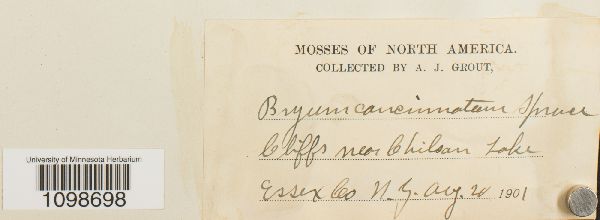 MOSSES OF NORTH AMERICA.
COLLECTED BY A. J. GROUT,
Bryum concinnatum Spruce
Cliffs near Chilson Lake
Essex Co N.Y. Aug. 20 1901
University of Minnesota Herbarium
1098698